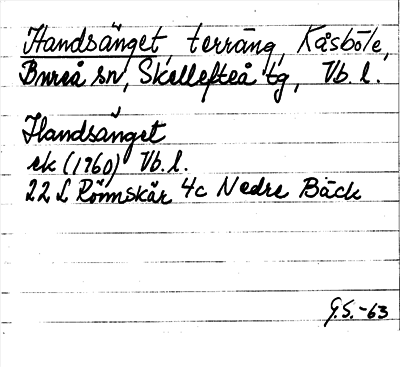 Handsänget, terräng, Kåsböle,
Bureå sn, Skellefteå tg, Vb. l.
Handsänget
ek (1960) Vb. l.
22 L Rönnskär 4c Nedre Bäck
G.S.-63